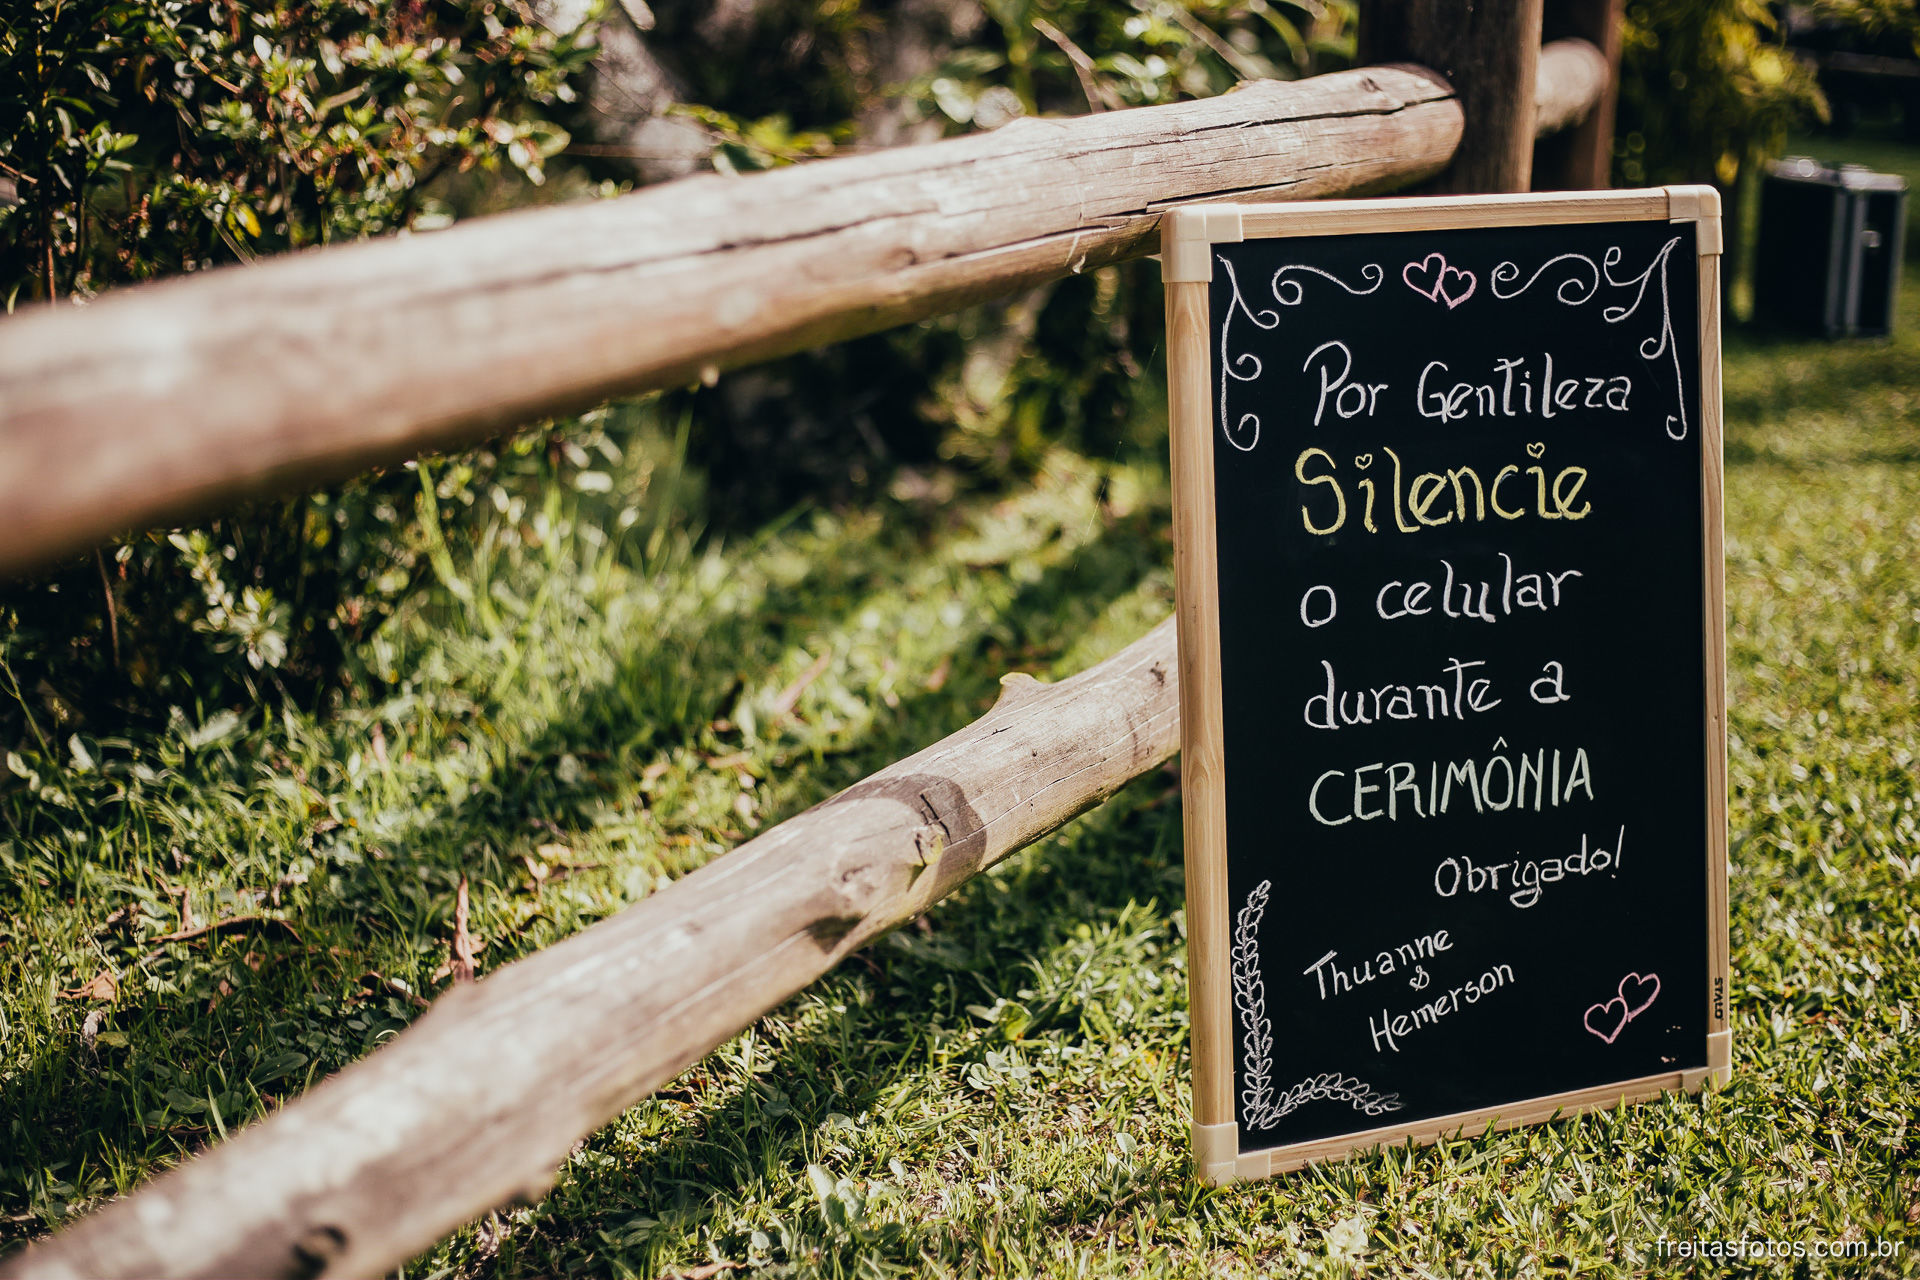 Por Gentileza
Silencie
o celular
durante a
CERIMÔNIA
Obrigado!
Thuanne
&
Hemerson
STALO
freitasfotos.com.br